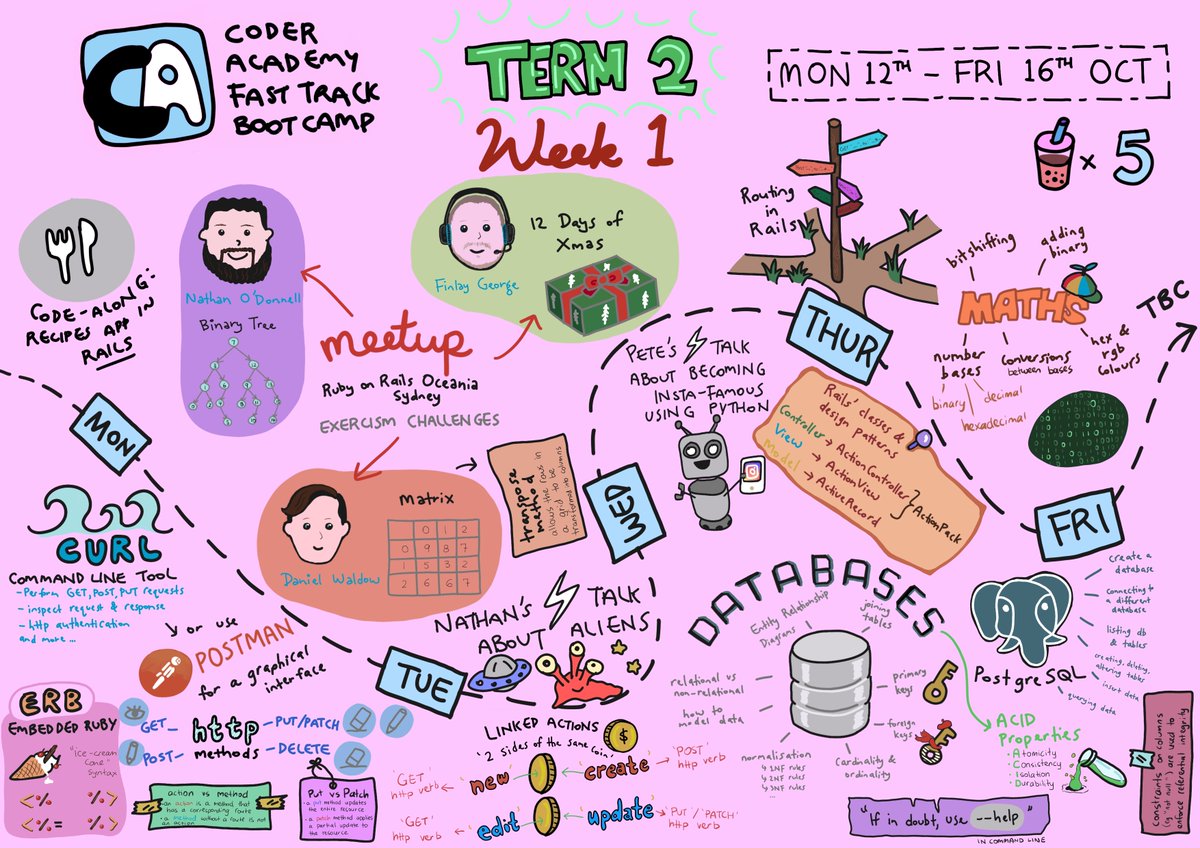 CA
CODER
ACADEMY
FAST TRACK
BOOTCAMP
TERM 2
Week 1
MON 12TH - FRI 16TH OCT
x 5
CODE-ALONG:
RECIPES APP IN
RAILS
Nathan O'Donnell
Binary Tree
Finlay George
12 Days of
Xmas
meetup
Ruby on Rails Oceania
Sydney
EXERCISM CHALLENGES
Daniel Waldow
Matrix
0 1 2
0 9 8 7
1 5 3 2
2 6 6 7
tranpose
method
allows the rows in
a grid to be
transformed into columns
MON
CURL
COMMAND LINE TOOL
- Perform GET, POST, PUT requests
- inspect request & response
- http authentication
and more ...
or use
POSTMAN
for a graphical
interface
TUE
NATHAN'S TALK
ABOUT ALIENS
ERB
EMBEDDED RUBY
"ice-cream
cone"
syntax
<% %>
<%= %>
GET
POST
http
methods
PUT/PATCH
DELETE
action vs method
- an action is a method that
has a corresponding route
- a method without a route is not
an action
Put vs Patch
- a put method updates
the entire resource
- a patch method applies
a partial update to
the resource
LINKED ACTIONS
'2 sides of the same coin'
$
'GET'
http verb
new
create
'POST'
http verb
'GET'
http verb
edit
update
'PUT'/'PATCH'
http verb
WED
PETE'S TALK
ABOUT BECOMING
INSTA-FAMOUS
USING PYTHON
Routing
in
Rails
THUR
Rails' classes &
design patterns
Controller → ActionController
View → ActionView
Model → ActiveRecord
ActionPack
bitshifting
adding
binary
MATHS
number
bases
conversions
between bases
hex &
rgb
colours
binary
decimal
hexadecimal
TBC
FRI
DATABASES
Entity Relationship
Diagrams
joining
tables
relational vs
non-relational
primary
keys
how to
model data
foreign
keys
normalisation
↳ 1NF rules
↳ 2NF rules
↳ 3NF rules
...
Cardinality &
ordinality
ACID
Properties
- Atomicity
- Consistency
- Isolation
- Durability
PostgreSQL
create a
database
connecting to
a different
database
listing db
& tables
creating, deleting,
altering tables
insert data
querying data
constraints on columns
(eg "not null") are used to
enforce referential integrity
"If in doubt, use --help"
IN COMMAND LINE